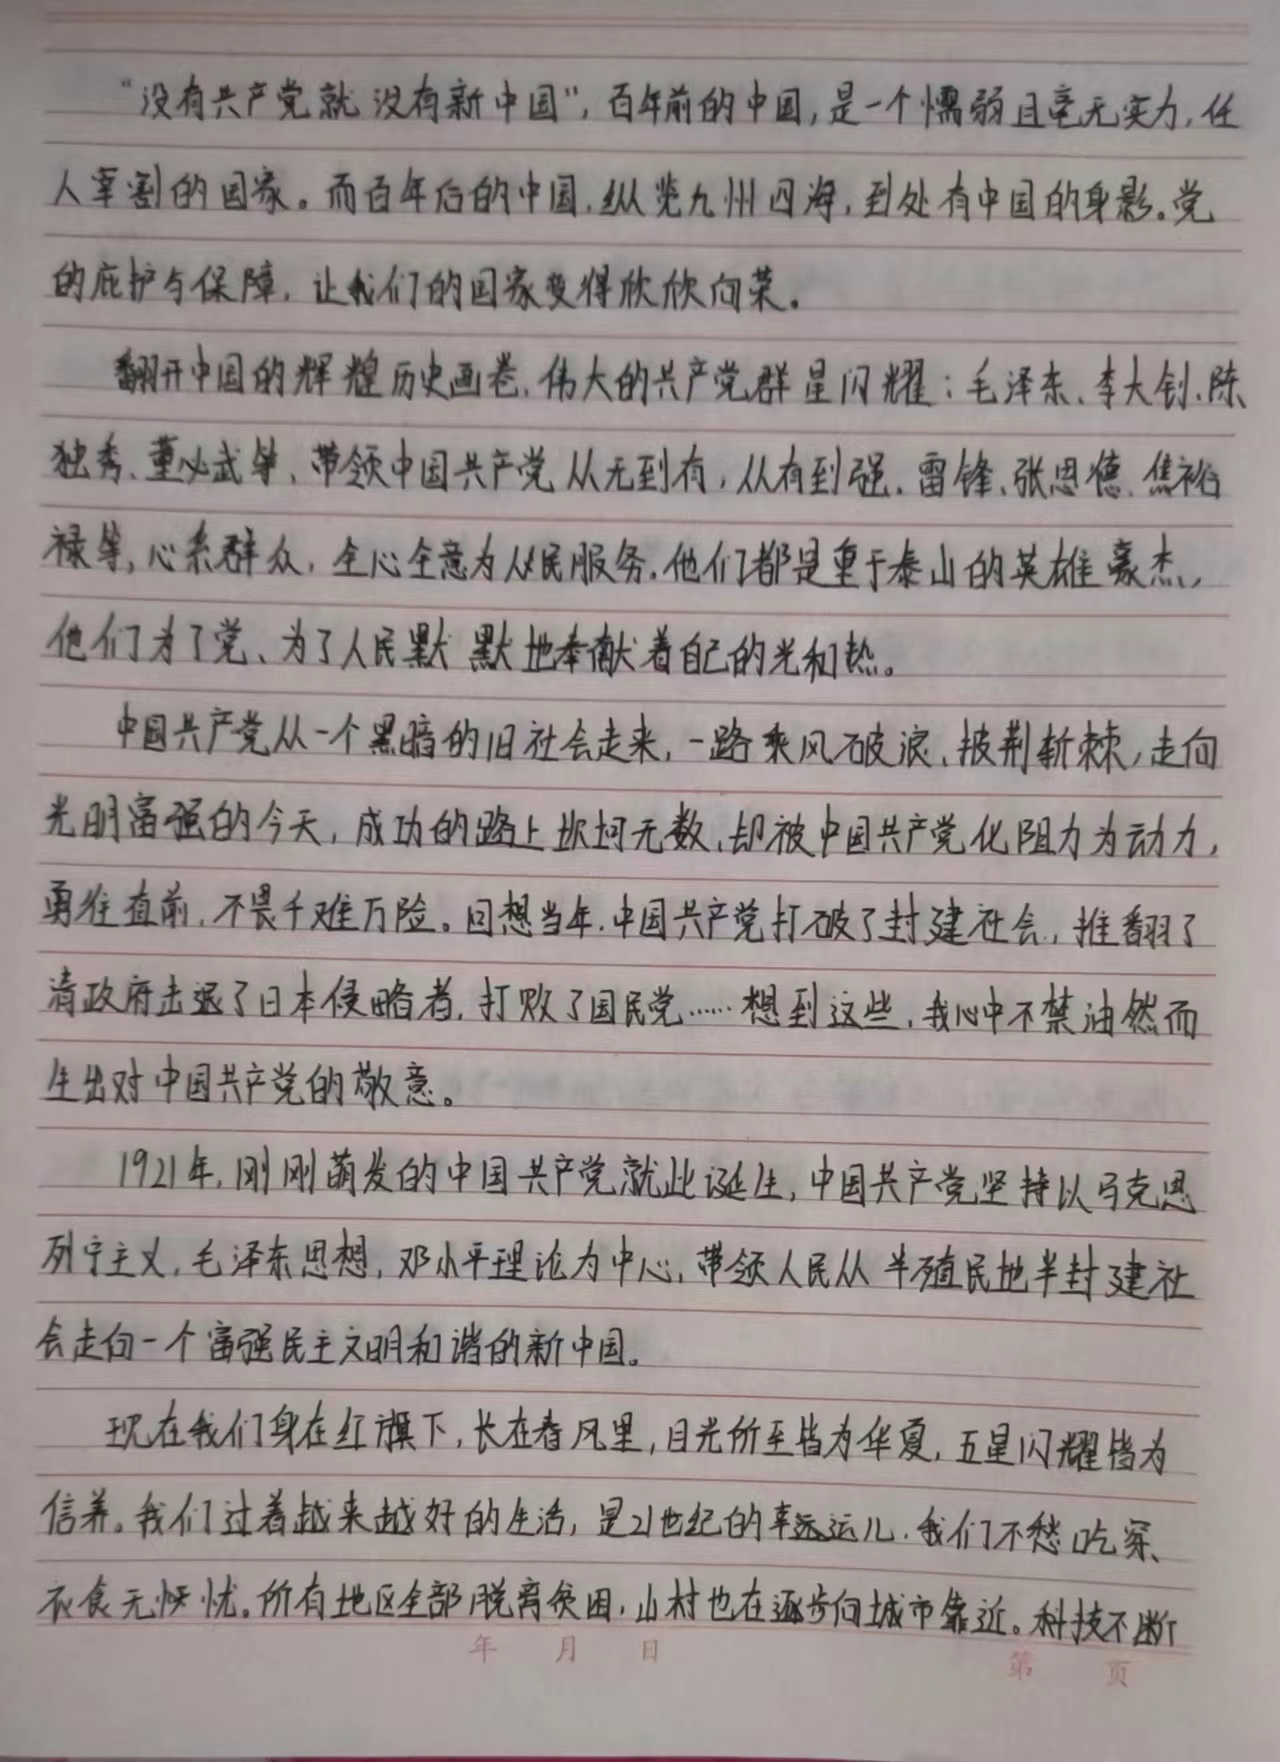 “没有共产党就没有新中国”，百年前的中国，是一个懦弱且毫无实力，任
人宰割的国家。而百年后的中国，纵览九州四海，到处有中国的身影。党
的庇护与保障，让我们的国家变得欣欣向荣。
翻开中国的辉煌历史画卷，伟大的共产党群星闪耀：毛泽东、李大钊、陈
独秀、董必武等，带领中国共产党从无到有，从有到强。雷锋、张思德、焦裕
禄等，心系群众，全心全意为人民服务。他们都是重于泰山的英雄豪杰，
他们为了党、为了人民默默地奉献着自己的光和热。
中国共产党从一个黑暗的旧社会走来，一路乘风破浪、披荆斩棘，走向
光明富强的今天，成功的路上坎坷无数，却被中国共产党化阻力为动力，
勇往直前，不畏千难万险。回想当年，中国共产党打破了封建社会，推翻了
清政府击退了日本侵略者，打败了国民党……想到这些，我心中不禁油然而
生出对中国共产党的敬意。
1921年，刚刚萌发的中国共产党就此诞生，中国共产党坚持以马克思
列宁主义，毛泽东思想，邓小平理论为中心，带领人民从半殖民地半封建社
会走向一个富强民主文明和谐的新中国。
现在我们身在红旗下，长在春风里，目光所至皆为华夏，五星闪耀皆为
信养。我们过着越来越好的生活，是21世纪的幸运儿。我们不愁吃穿、
衣食无忧。所有地区全部脱离贫困，山村也在逐步向城市靠近。科技不断
年 月 日
第 页